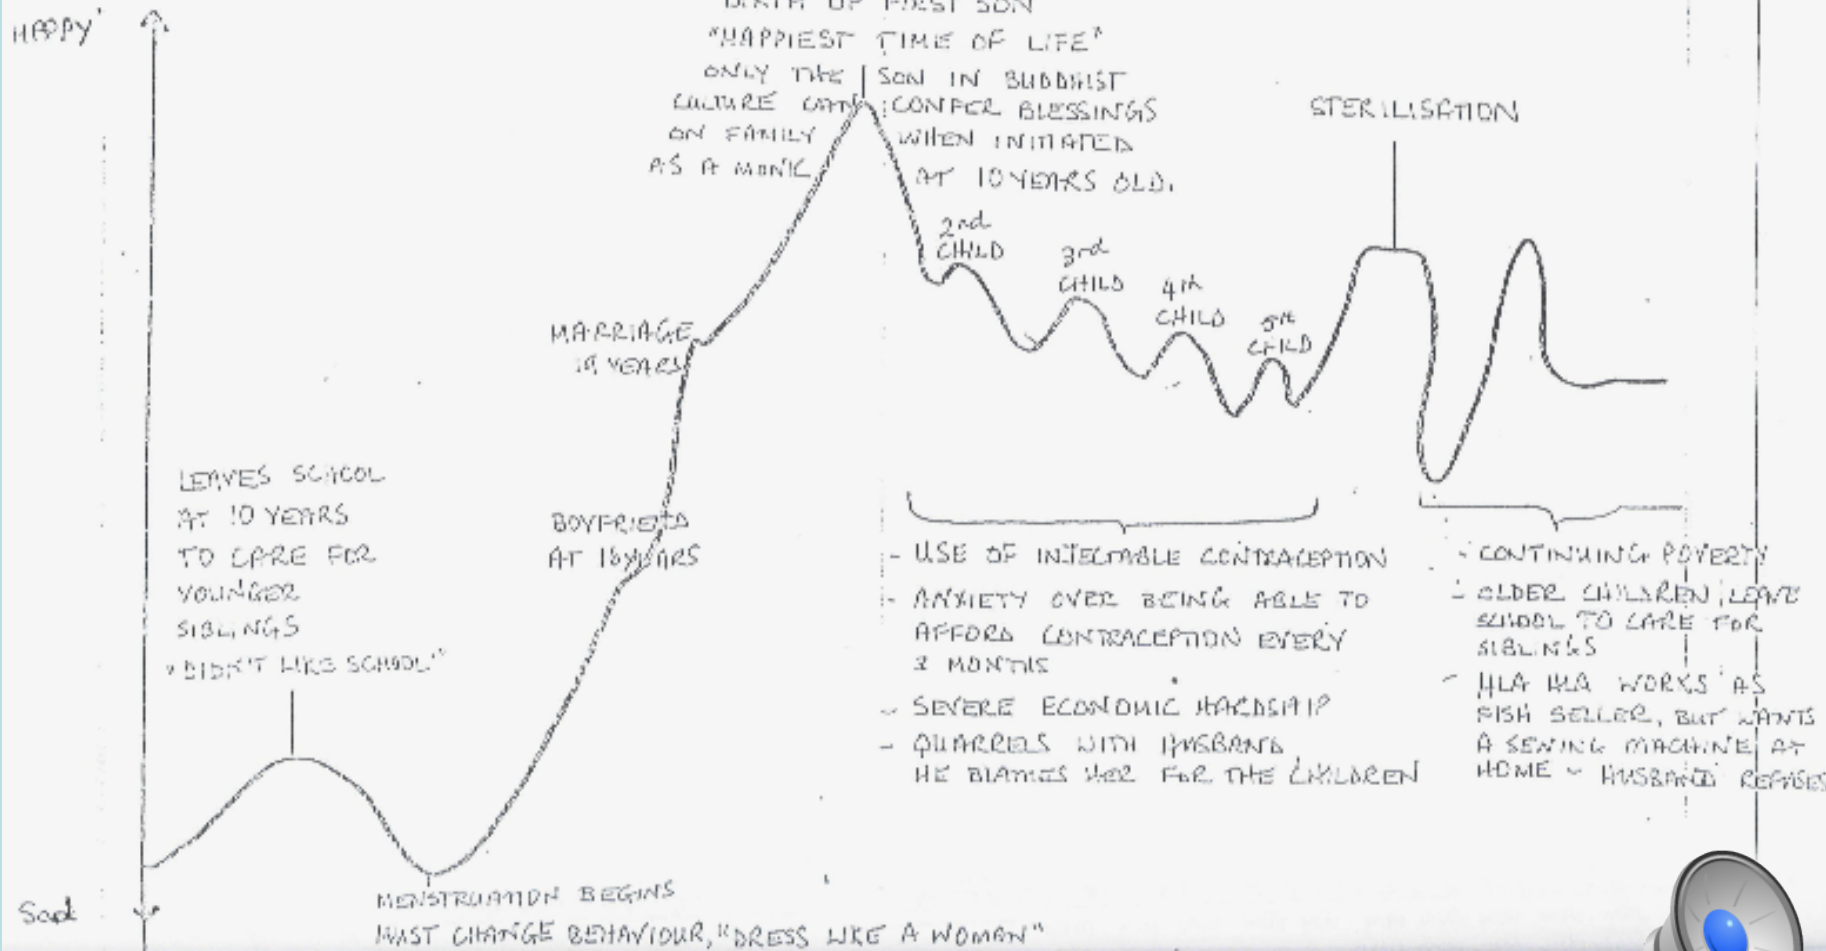 HAPPY
BIRTH OF FIRST SON
"HAPPIEST TIME OF LIFE"
ONLY THE SON IN BUDDHIST
CULTURE CAN CONFER BLESSINGS
ON FAMILY WHEN INITIATED
AS A MONK AT 10 YEARS OLD.
STERILISATION
2nd
CHILD
3rd
CHILD
4th
CHILD
5th
CHILD
MARRIAGE
19 YEARS
BOYFRIEND
AT 16 YEARS
LEAVES SCHOOL
AT 10 YEARS
TO CARE FOR
YOUNGER
SIBLINGS
"DIDN'T LIKE SCHOOL"
- USE OF INJECTABLE CONTRACEPTION
- ANXIETY OVER BEING ABLE TO
AFFORD CONTRACEPTION EVERY
3 MONTHS
- SEVERE ECONOMIC HARDSHIP
- QUARRELS WITH HUSBAND,
HE BLAMES HER FOR THE CHILDREN
- CONTINUING POVERTY
- OLDER CHILDREN LEAVE
SCHOOL TO CARE FOR
SIBLINGS
- HLA HLA WORKS AS
FISH SELLER, BUT WANTS
A SEWING MACHINE AT
HOME - HUSBAND REFUSES
Sad
MENSTRUATION BEGINS
MUST CHANGE BEHAVIOUR, "DRESS LIKE A WOMAN"